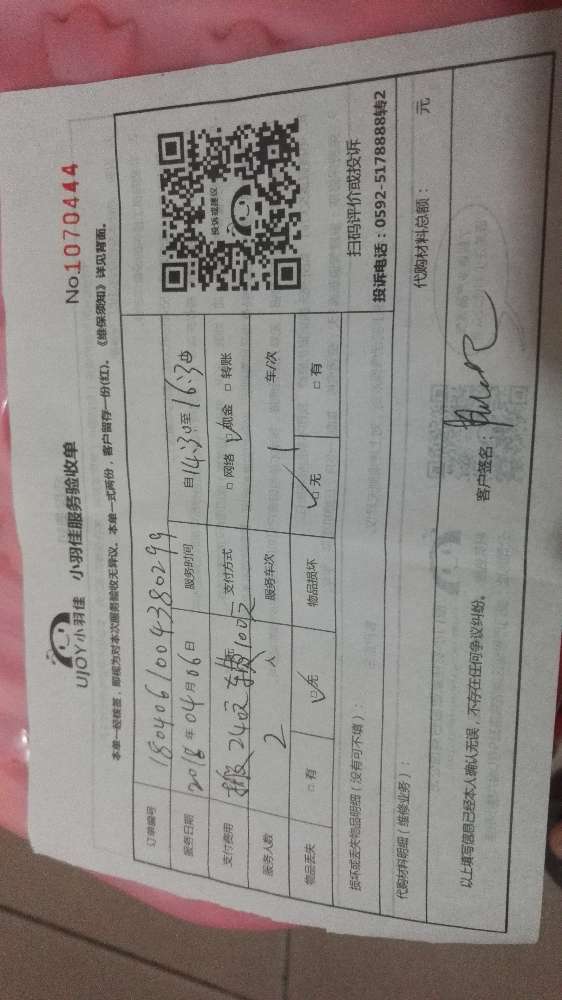 UJOY小羽佳 小羽佳服务验收单
No.1070444
本单一经核签，即视为对本次服务验收无异议。本单一式两份，客户留存一份(红)。《维保须知》详见背面。
订单编号 1804061004380299
服务日期 2018年04月06日 服务时间 自14:30至16:30
支付费用 搬240元 支付方式 □网络 ☑现金 □转账
服务人数 2 人 服务车次 1 车/次
物品丢失 □有 ☑无 物品损坏 ☑无 □有
投诉或建议
扫码评价或投诉
投诉电话：0592-5178888转2
损坏或丢失物品明细（没有可不填）：
代购材料明细（维修业务）：
代购材料总额： 元
以上填写信息已经本人确认无误，不存在任何争议纠纷。
客户签名：